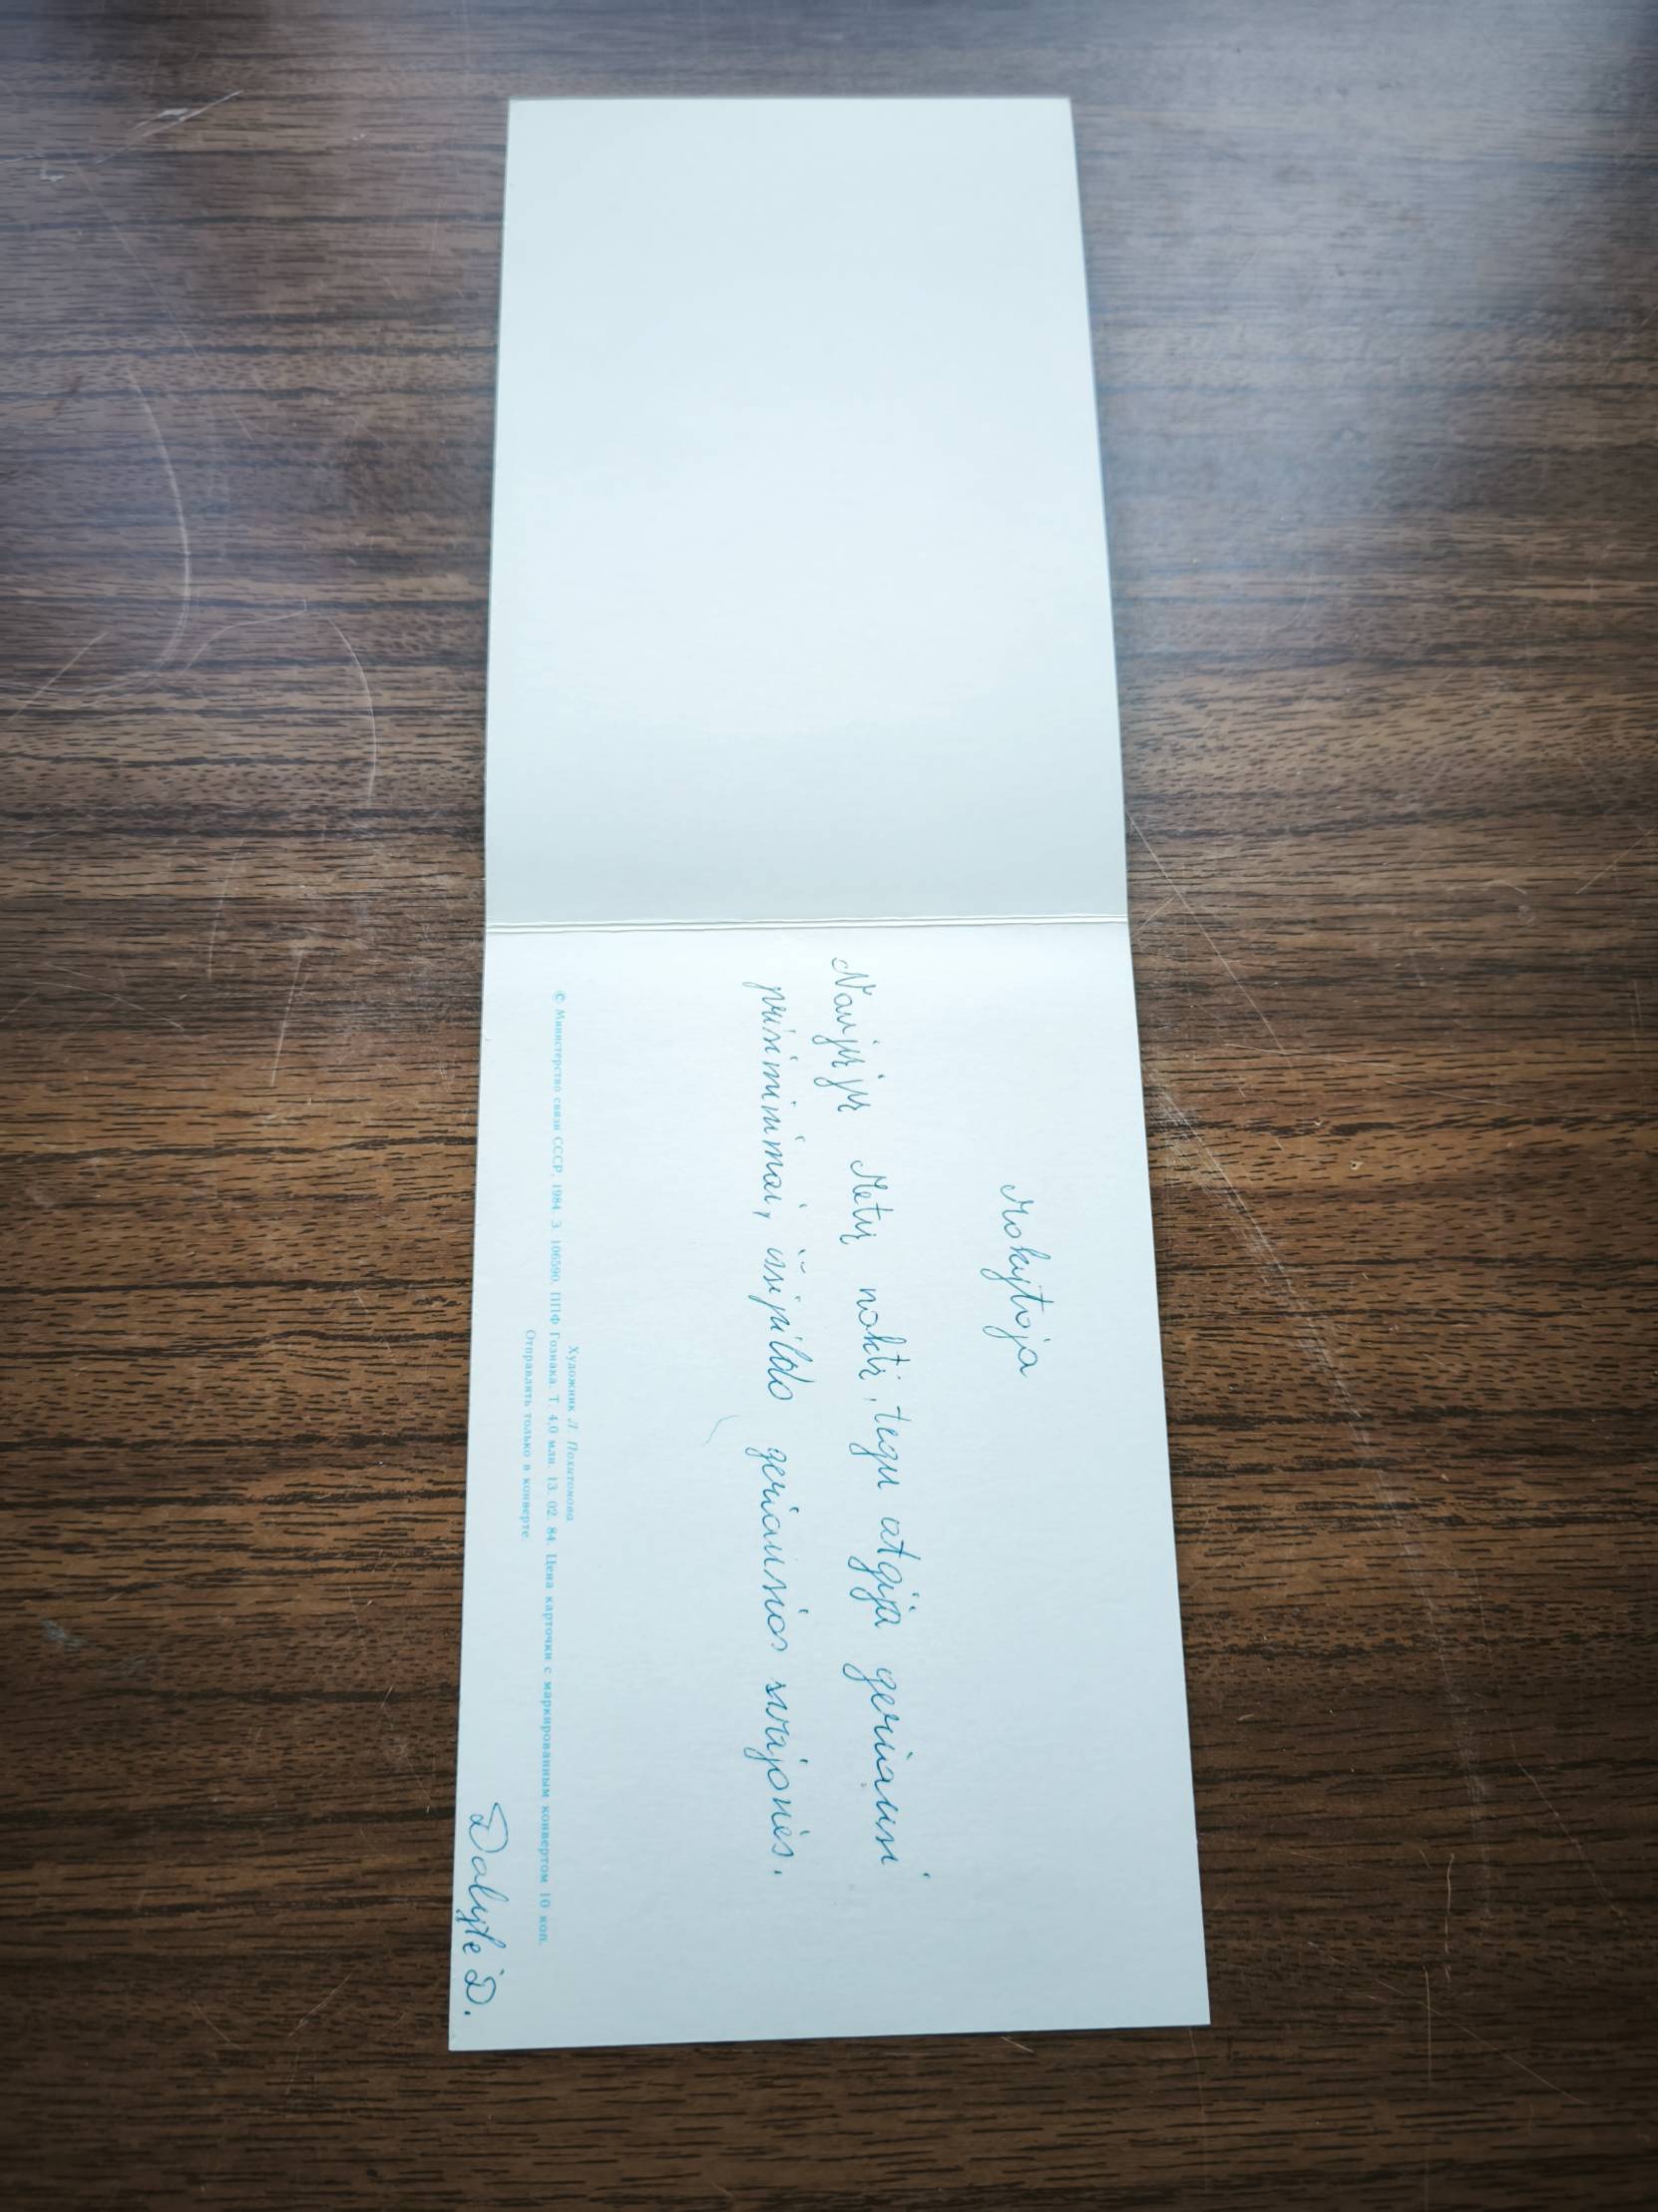 Mokytoja
Naujųjų Metų naktį, tegu atgyja geriausi
prisiminimai, išsipildo geriausios svajonės.
Художник Л. Похитонова
© Министерство связи СССР, 1984. З. 106590. ППФ Гознака. Т. 4,0 млн. 13. 02. 84. Цена карточки с маркированным конвертом 10 коп.
Отправлять только в конверте.
Dalytė D.